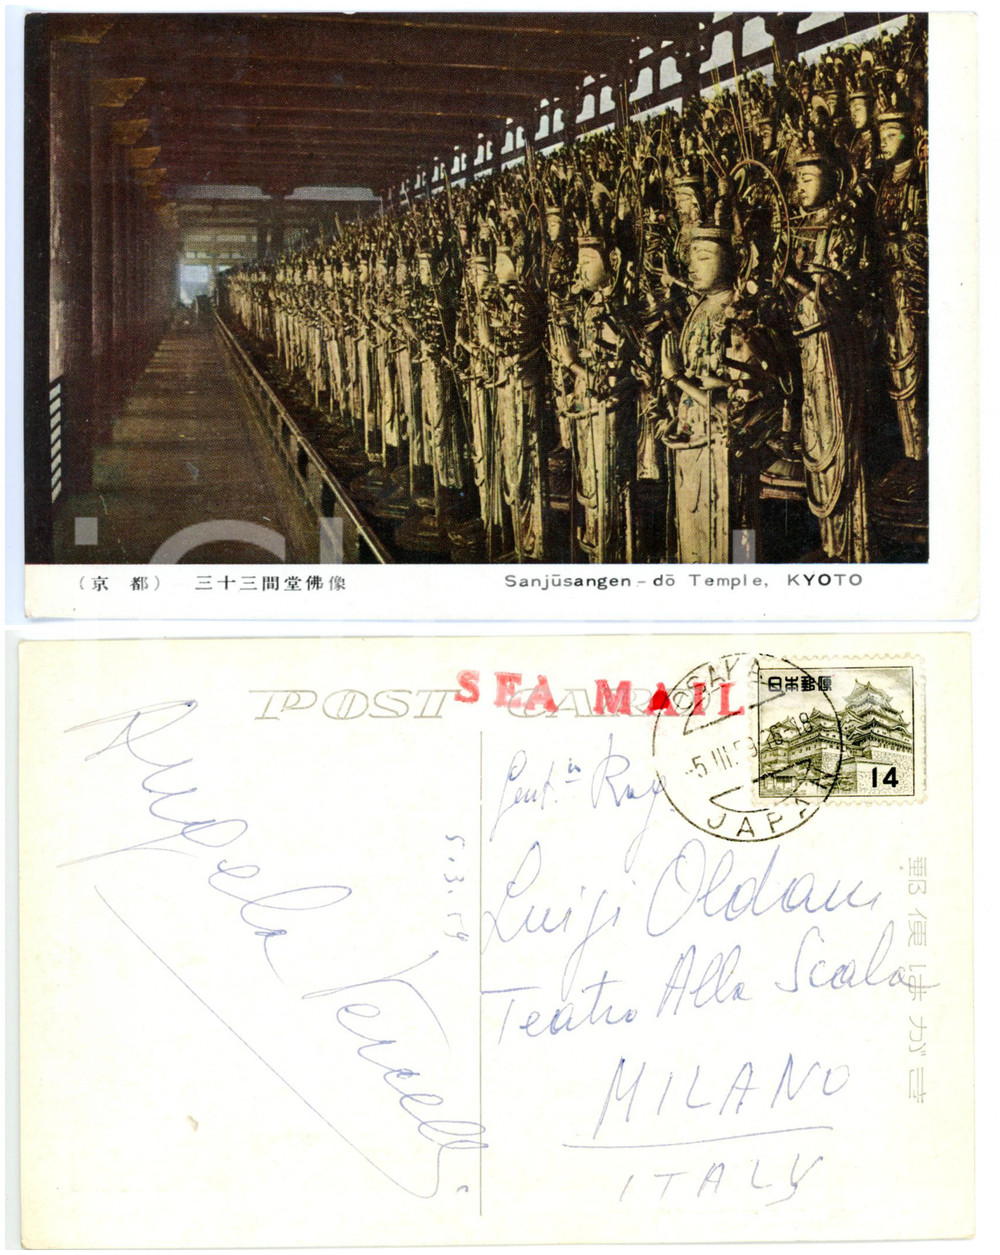 (京 都) 三十三間堂佛像
Sanjūsangen-dō Temple, KYOTO
POST CARD
SEA MAIL
OSAKA
-5.III.59
JAPAN
日本郵便
14
郵便はがき
5.3.59
Gent. Rag.
Luigi Oldani
Teatro Alla Scala
MILANO
ITALY
Vercelli